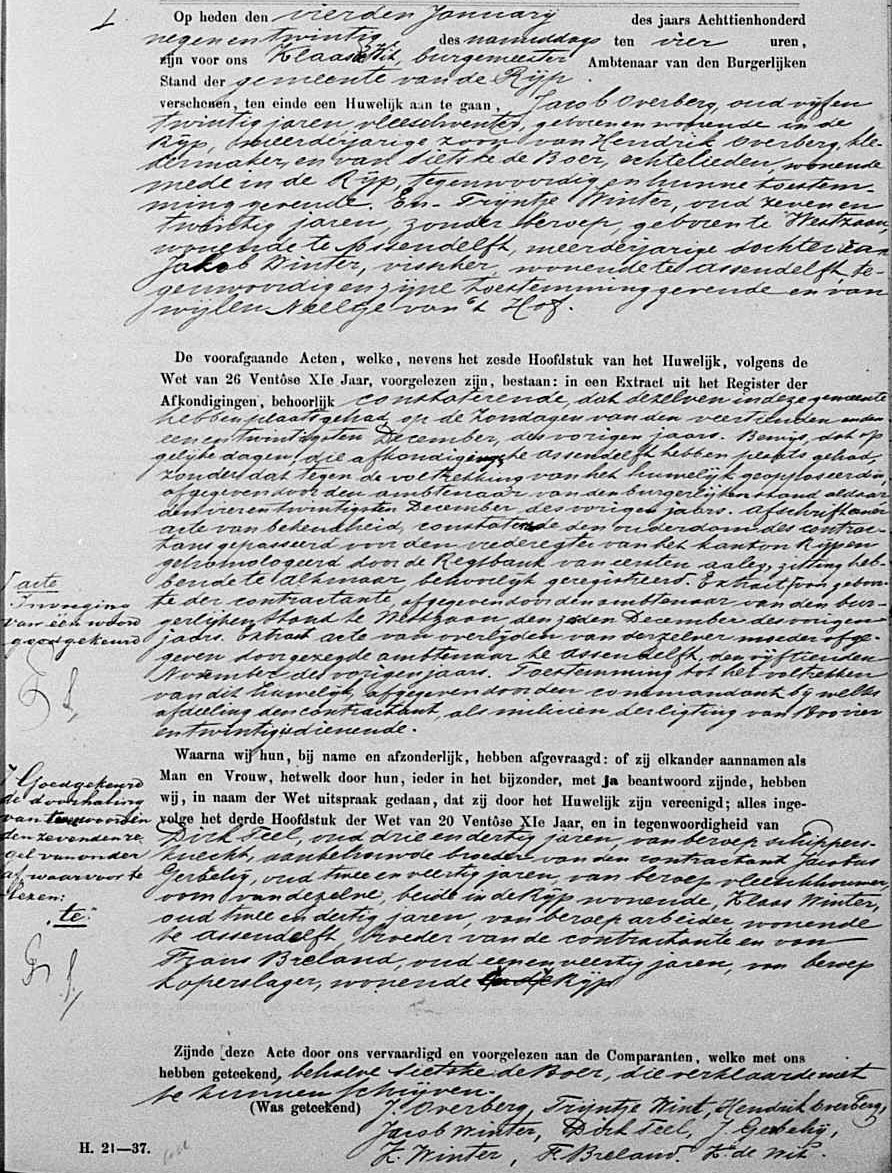 1.
Op heden den vierden January des jaars Achttienhonderd
negenentwintig des namiddags ten vier uren,
zijn voor ons Klaas de Wit, burgemeester Ambtenaar van den Burgerlijken
Stand der gemeente van de Rijp
verschenen, ten einde een Huwelijk aan te gaan, Jacob Overberg, oud vijfen
twintig jaren, vleeschventer, geboren en wonende in de
Rijp, meerderjarige zoon van Hendrik Overberg, kle-
dermaker, en van Sietske de Boer, echtelieden, wonende
mede in de Rijp, tegenwoordig en hunne toestem-
ming gevende. En Trijntje Winter, oud zevenen
twintig jaren, zonder beroep, geboren te Westzaan
wonende te Assendelft, meerderjarige dochter van
Jakob Winter, visscher, wonende te Assendelft, te-
genwoordig en zijne toestemming gevende en van
wijlen Neeltje van 't Hof.
De voorafgaande Acten, welke, nevens het zesde Hoofdstuk van het Huwelijk, volgens de
Wet van 26 Ventôse XIe Jaar, voorgelezen zijn, bestaan: in een Extract uit het Register der
Afkondigingen, behoorlijk constaterende, dat dezelven in deze gemeente
hebben plaats gehad, op de Zondagen van den veertienden en den
een en twintigsten December, des vorigen jaars. Bewijs, dat op
gelijke dagen, die afkondiging te Assendelft hebben plaats gehad,
zonder dat tegen de voltrekking van het huwelijk geopposeerd is,
afgegeven door den ambtenaar van den burgerlijken stand aldaar
den vier en twintigsten December des vorigen jaars. Afschrift eener
acte van bekendheid, constaterende den ouderdom des contrac-
tants gepasseerd voor den vrederegter van het kanton Rijp en
gehomologeerd door de Regtbank van eersten aanleg, zitting heb-
bende te Alkmaar, behoorlijk geregistreerd. Extract van geboor-
te der contractante afgegeven door den ambtenaar van den bur-
gerlijken stand te Westzaan, den December des vorigen
jaars. Extract acte van overlijden van derzelver moeder afge-
geven door gezegde ambtenaar te Assendelft, den vijftienden
November des vorigen jaars. Toestemming tot het voltrekken
van dit huwelijk, afgegeven door den commandant bij welks
afdeeling den contractant, als milicien der ligting van 1800 vier
en twintig is dienende.
acte
Invoeging
van één woord
goedgekeurd
Waarna wij hun, bij name en afzonderlijk, hebben afgevraagd: of zij elkander aannamen als
Man en Vrouw, hetwelk door hun, ieder in het bijzonder, met ja beantwoord zijnde, hebben
wij, in naam der Wet uitspraak gedaan, dat zij door het Huwelijk zijn vereenigd; alles inge-
volge het derde Hoofdstuk der Wet van 20 Ventôse XIe Jaar, en in tegenwoordigheid van
Dirk Teel, oud drie en dertig jaren, van beroep schippers-
knecht, aanbehuwde broeder van den contractant Jacobus
Gerbelij, oud twee en veertig jaren, van beroep vleeschhouwer
oom van dezelve, beide in de Rijp wonende, Klaas Winter,
oud twee en dertig jaren, van beroep arbeider, wonende
te Assendelft, broeder van de contractante en van
Frans Breland, oud een en veertig jaren, van beroep
koperslager, wonende in de Rijp
Goedgekeurd
de doorhaling
van twee woorden
den zevenden re-
gel van onder
af waarvoor te
lezen:
"te"
Zijnde deze Acte door ons vervaardigd en voorgelezen aan de Comparanten, welke met ons
hebben geteekend, behalve Sietske de Boer, die verklaarde niet
te kunnen schrijven.
(Was geteekend) J. Overberg, Trijntje Wint, Hendrik Overberg,
Jacob Winter, Dirk Teel, J. Gerbelij,
K. Winter, F. Breland. K. de Wit.
H. 21—37.